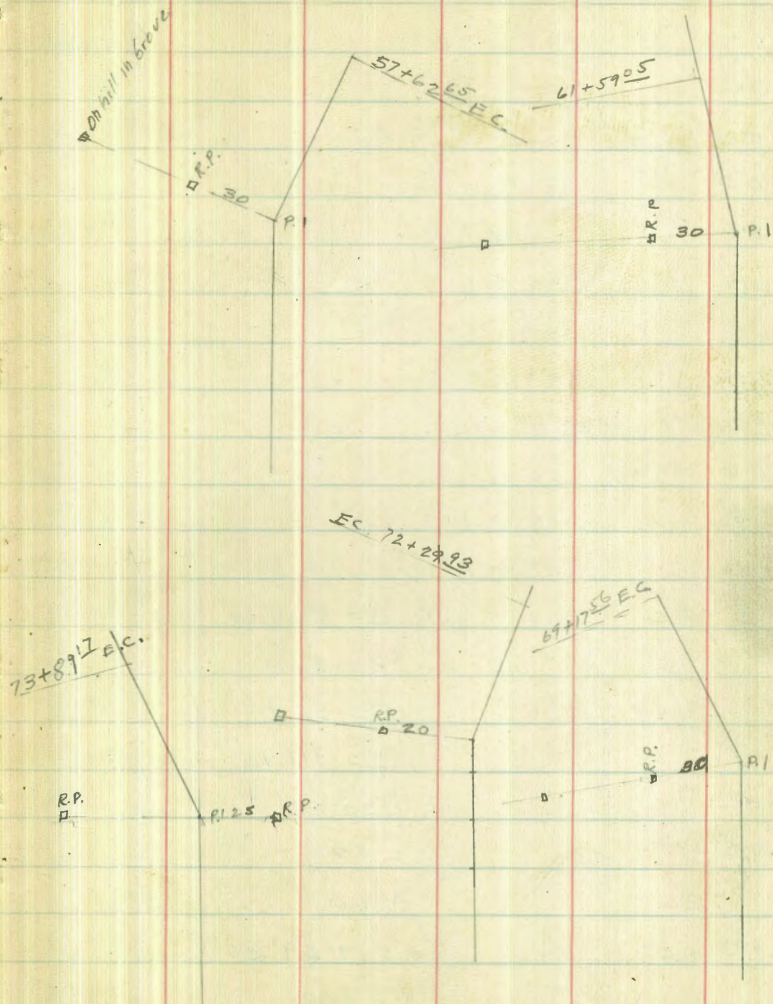 On hill in Grove
R.P.
30
P.I
57+62 65 E.C.
61+59 05
R.P
30
P.I
E.C. 72+29.93
69+17 56 E.C.
73+89 17 E.C.
R.P. 20
R.P.
P.I
R.P.
P.I 25 R.P.